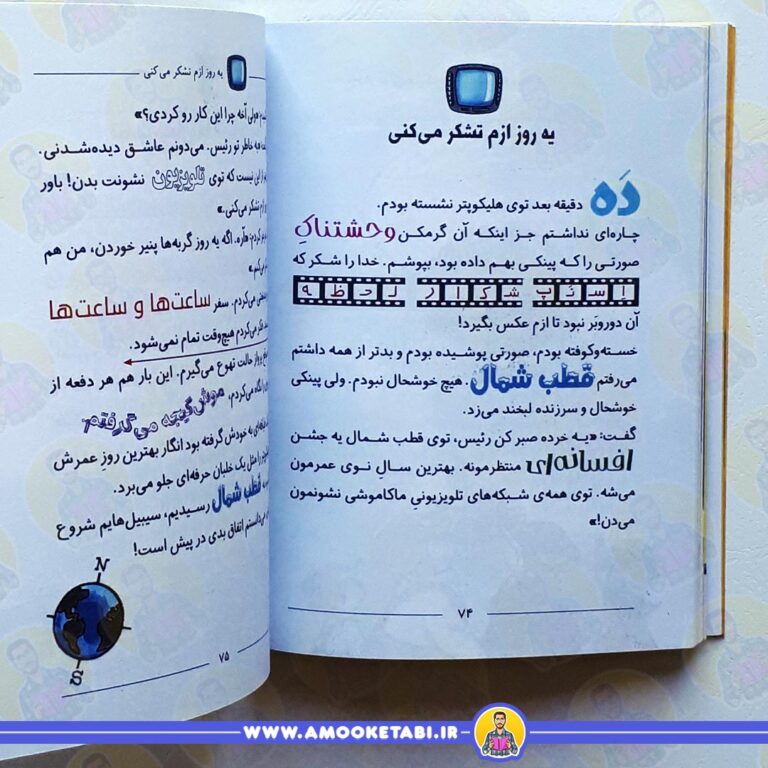 یه روز ازم تشکر می‌کنی
دَه دقیقه بعد توی هلیکوپتر نشسته بودم.
چاره‌ای نداشتم جز اینکه آن گرمکن وحشتناکِ
صورتی را که پینکی بهم داده بود، بپوشم. خدا را شکر که
اِسنُپ شکار لحظه
آن دوروبَر نبود تا ازم عکس بگیرد!
خسته‌وکوفته بودم، صورتی پوشیده بودم و بدتر از همه داشتم
می‌رفتم قطب شمال. هیچ خوشحال نبودم. ولی پینکی
خوشحال و سرزنده لبخند می‌زد.
گفت: «یه خرده صبر کن رئیس، توی قطب شمال یه جشن
افسانه‌ای منتظرمونه. بهترین سالِ نوی عمرمون
می‌شه. توی همه‌ی شبکه‌های تلویزیونیِ ماکاموشی نشونمون
می‌دن!»
۷۴
یه روز ازم تشکر می‌کنی
«ولی آخه چرا این کار رو کردی؟»
به خاطر تو رئیس. می‌دونم عاشق دیده‌شدنی.
این نیست که توی تلویزیون نشونت بدن! باور
تشکر می‌کنی.»
«آره. اگه یه روز گربه‌ها پنیر خوردن، من هم
می‌کردم. سفر ساعت‌ها و ساعت‌ها
فکر می‌کردم هیچ‌وقت تمام نمی‌شود.
پرواز حالت تهوع می‌گیرم. این بار هم هر دفعه از
نگاه می‌کردم، موش‌گیجه می‌گرفتم!
به خودش گرفته بود انگار بهترین روز عمرش
را مثل یک خلبان حرفه‌ای جلو می‌برد.
قطب شمال رسیدیم، سیبیل‌هایم شروع
اتفاق بدی در پیش است!
N
S
۷۵
WWW.AMOOKETABI.IR